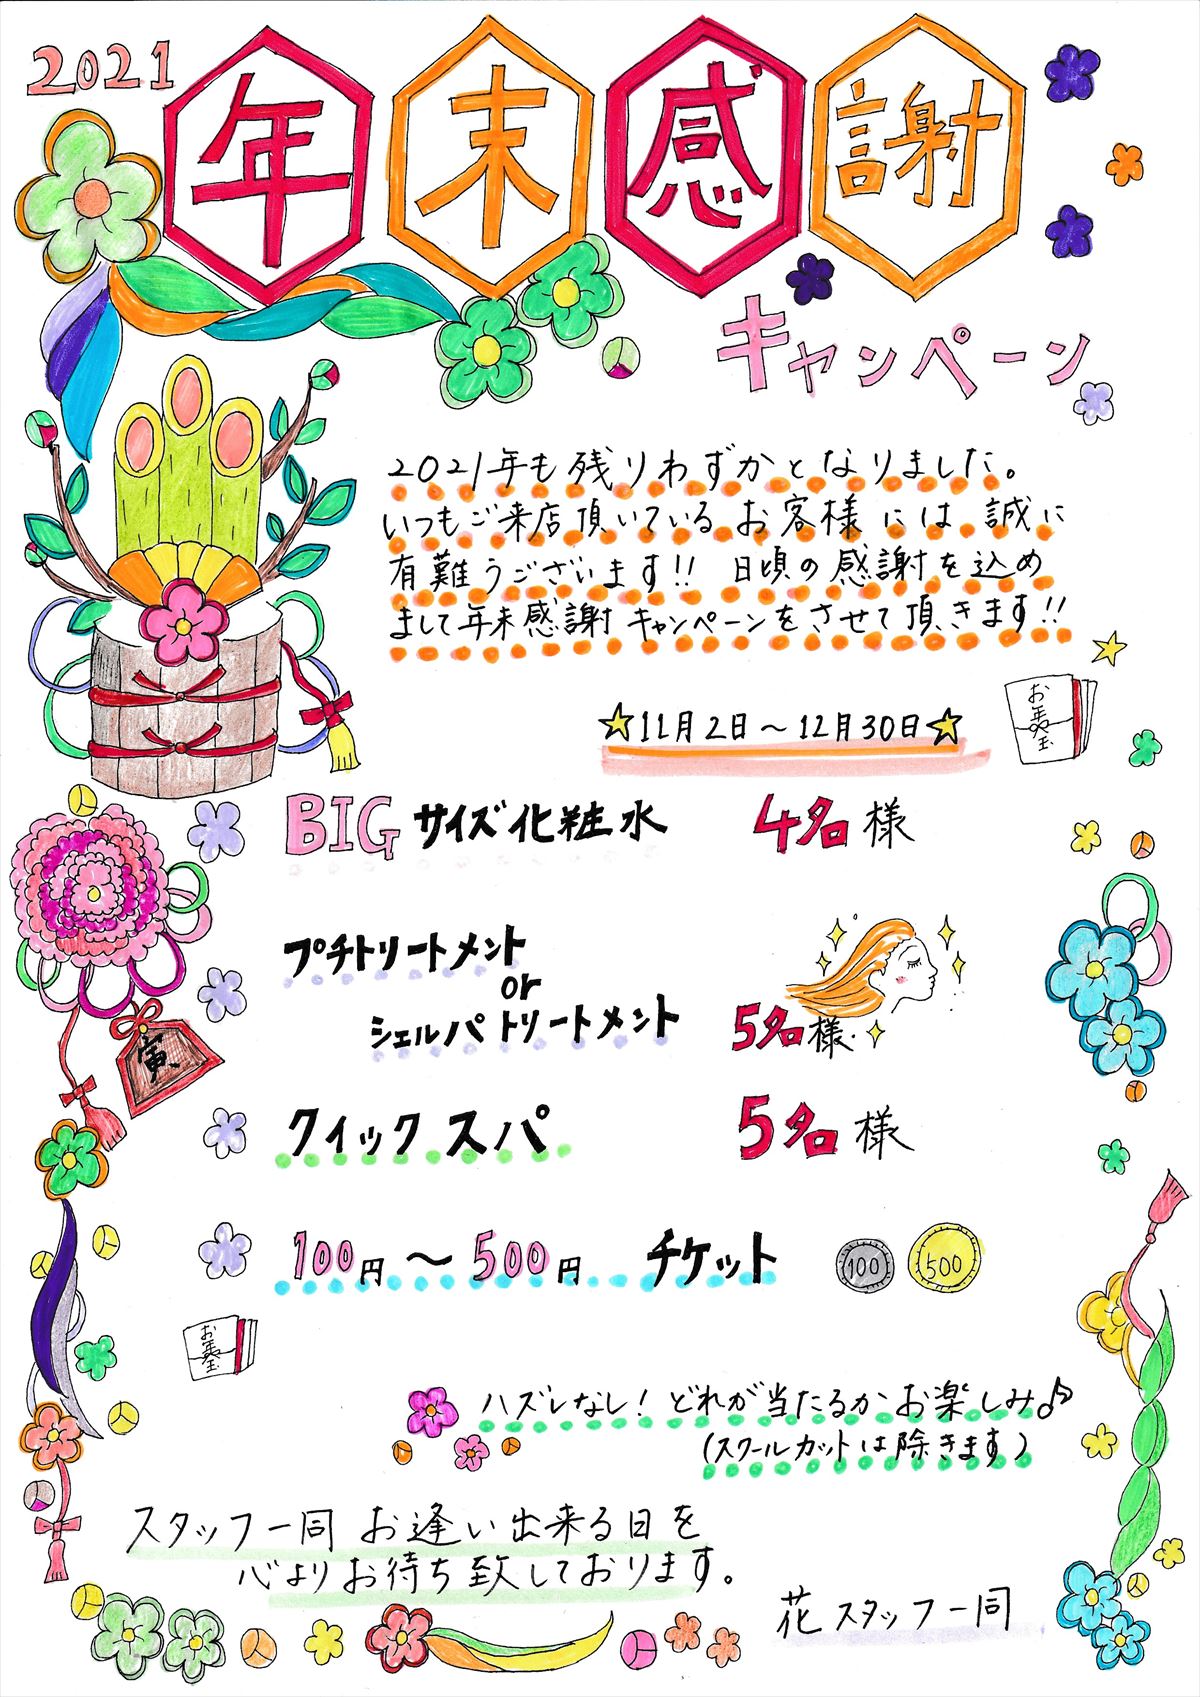 2021
年末感謝
キャンペーン
2021年も残りわずかとなりました。
いつもご来店頂いているお客様には誠に
有難うございます!! 日頃の感謝を込め
まして年末感謝キャンペーンをさせて頂きます!!
お年玉
☆11月2日~12月30日☆
BIGサイズ化粧水 4名様
プチトリートメント
or
シェルパトリートメント 5名様
寅
クイックスパ 5名様
100円~500円 チケット 100 500
お年玉
ハズレなし!どれが当たるかお楽しみ♪
(スクールカットは除きます)
スタッフ一同 お逢い出来る日を
心よりお待ち致しております。
花スタッフ一同